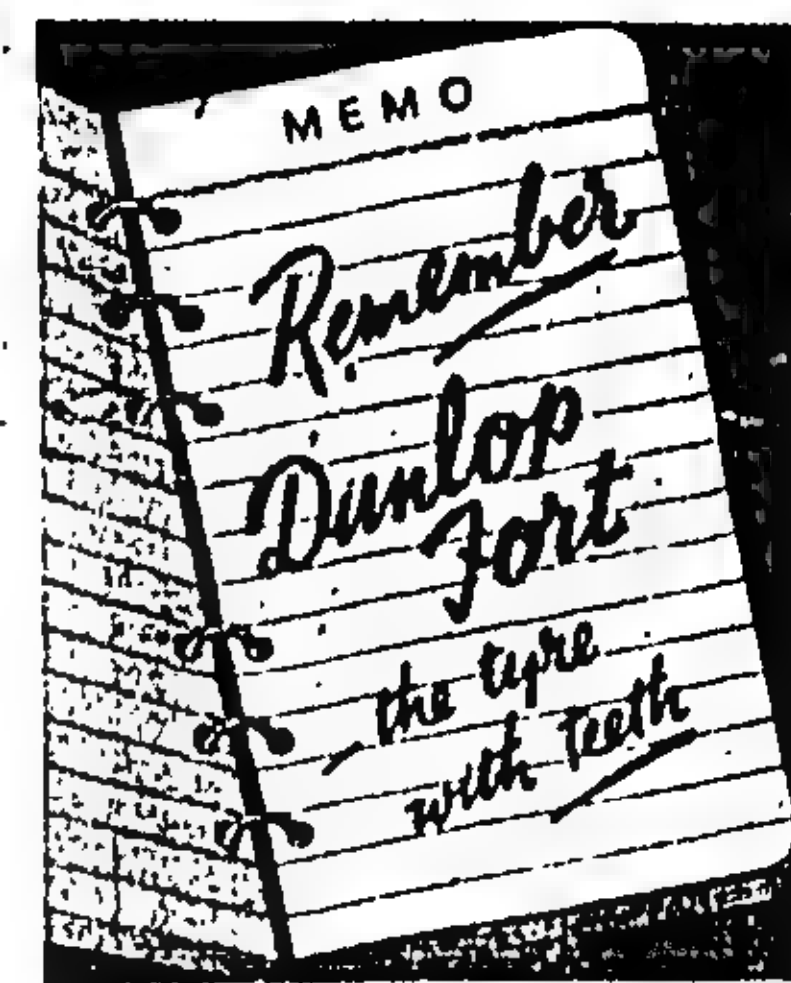 MEMO
Remember
Dunlop
Fort
- the tyre
with teeth